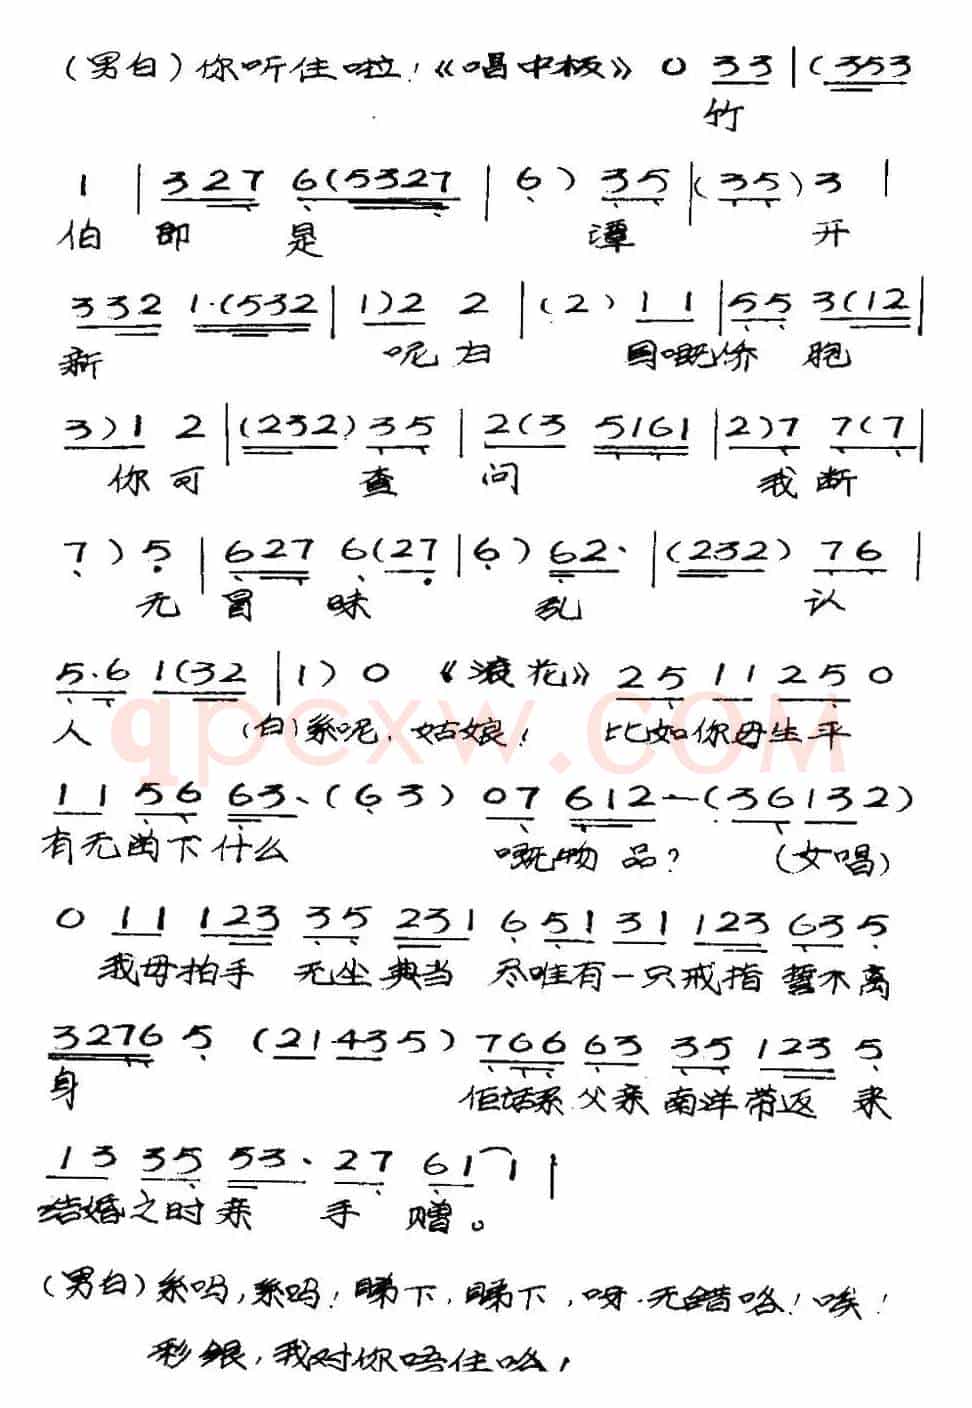 （男白）你听住啦！《唱中板》 0 33 |（353
竹
1 | 327 6（5327 | 6） 35 |（35）3 |
伯 即 是 潭 开
332 1·（532 | 1）2 2 |（2）11 | 55 3（12 |
新 呢 归 国嘅侨 胞
3）1 2 |（232）35 | 2（3 5161 | 2）7 7（7 |
你 可 查 问 我 断
7）5 | 627 6（27 | 6）62· |（232）76 |
无 冒 昧 乱 认
5·6 1（32 | 1）0 《滚花》 25 11 25 0
人 （白）系呢，姑娘！ 比如你母生平
11 56 63·（63）07 612—（36132）
有无卤下什么 嘅物 品？ （女唱）
0 11 123 35 231 6 51 31 123 63 5
我母拍手 无坐典当 尽唯有一只戒指 誓不离
3276 5 （21·435）766 63 35 123 5
身 佢话系 父亲 南洋带返 来
13 35 53· 27 61 1 |
结婚之时亲 手 赠。
（男白）系吗，系吗！睇下，睇下，呀·无错咯！唉！
彩银，我对你唔住咯，
qpcxw.COM